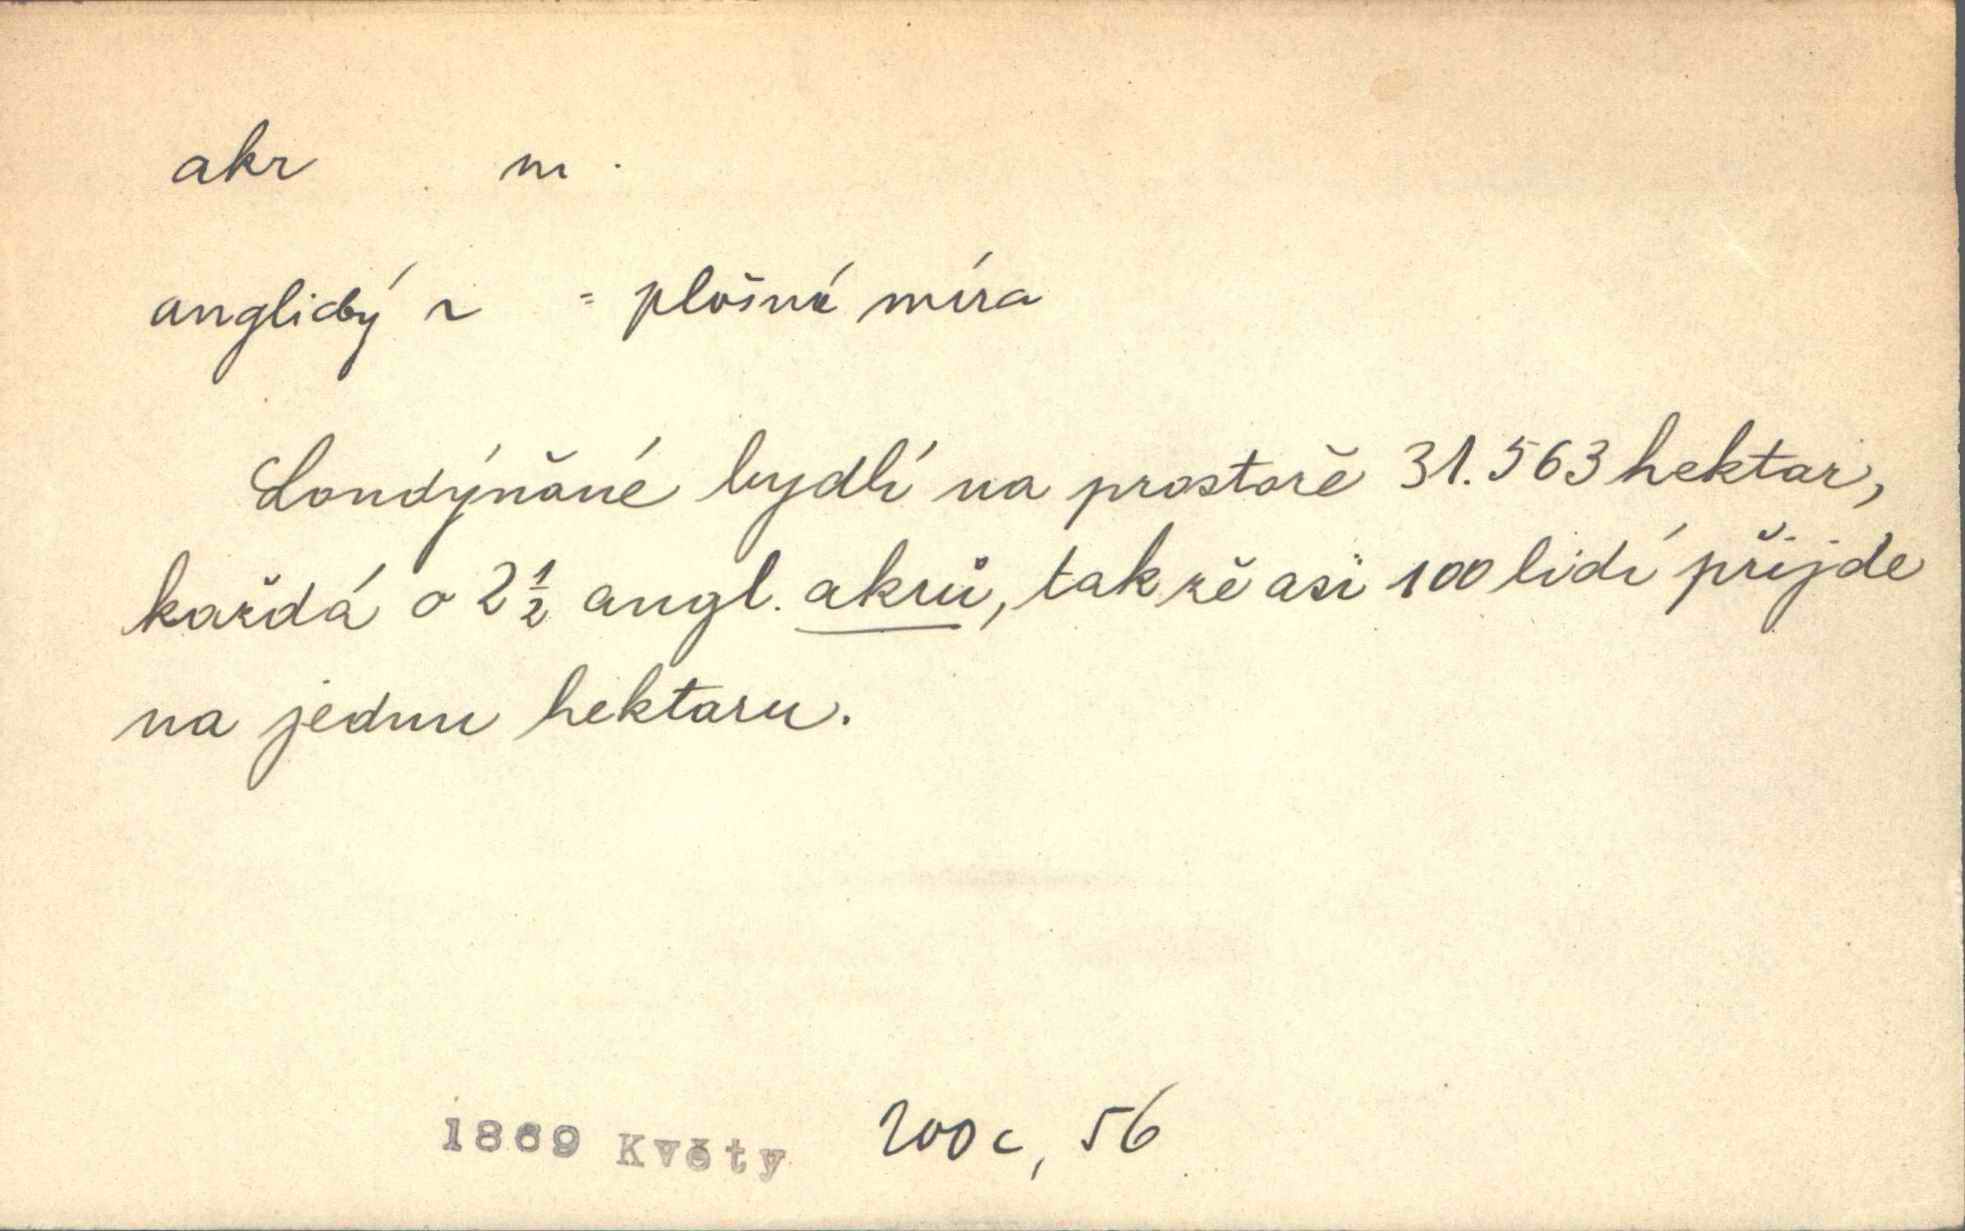 akr m.
anglický ~ = plošná míra
Londýňané bydlí na prostoře 31.563 hektar,
každá o 2½ angl. akrů, tak že asi 100 lidí přijde
na jednu hektaru.
1869 Květy 200c, 56